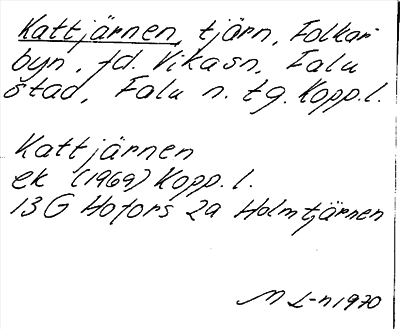 Kattjärnen, tjärn, Folkar-
byn, fd. Vikasn, Falu
stad, Falu n. tg. Kopp.l.
Kattjärnen
ek (1969) Kopp.l.
13G Hofors 2a Holmtjärnen
M L-n 1970